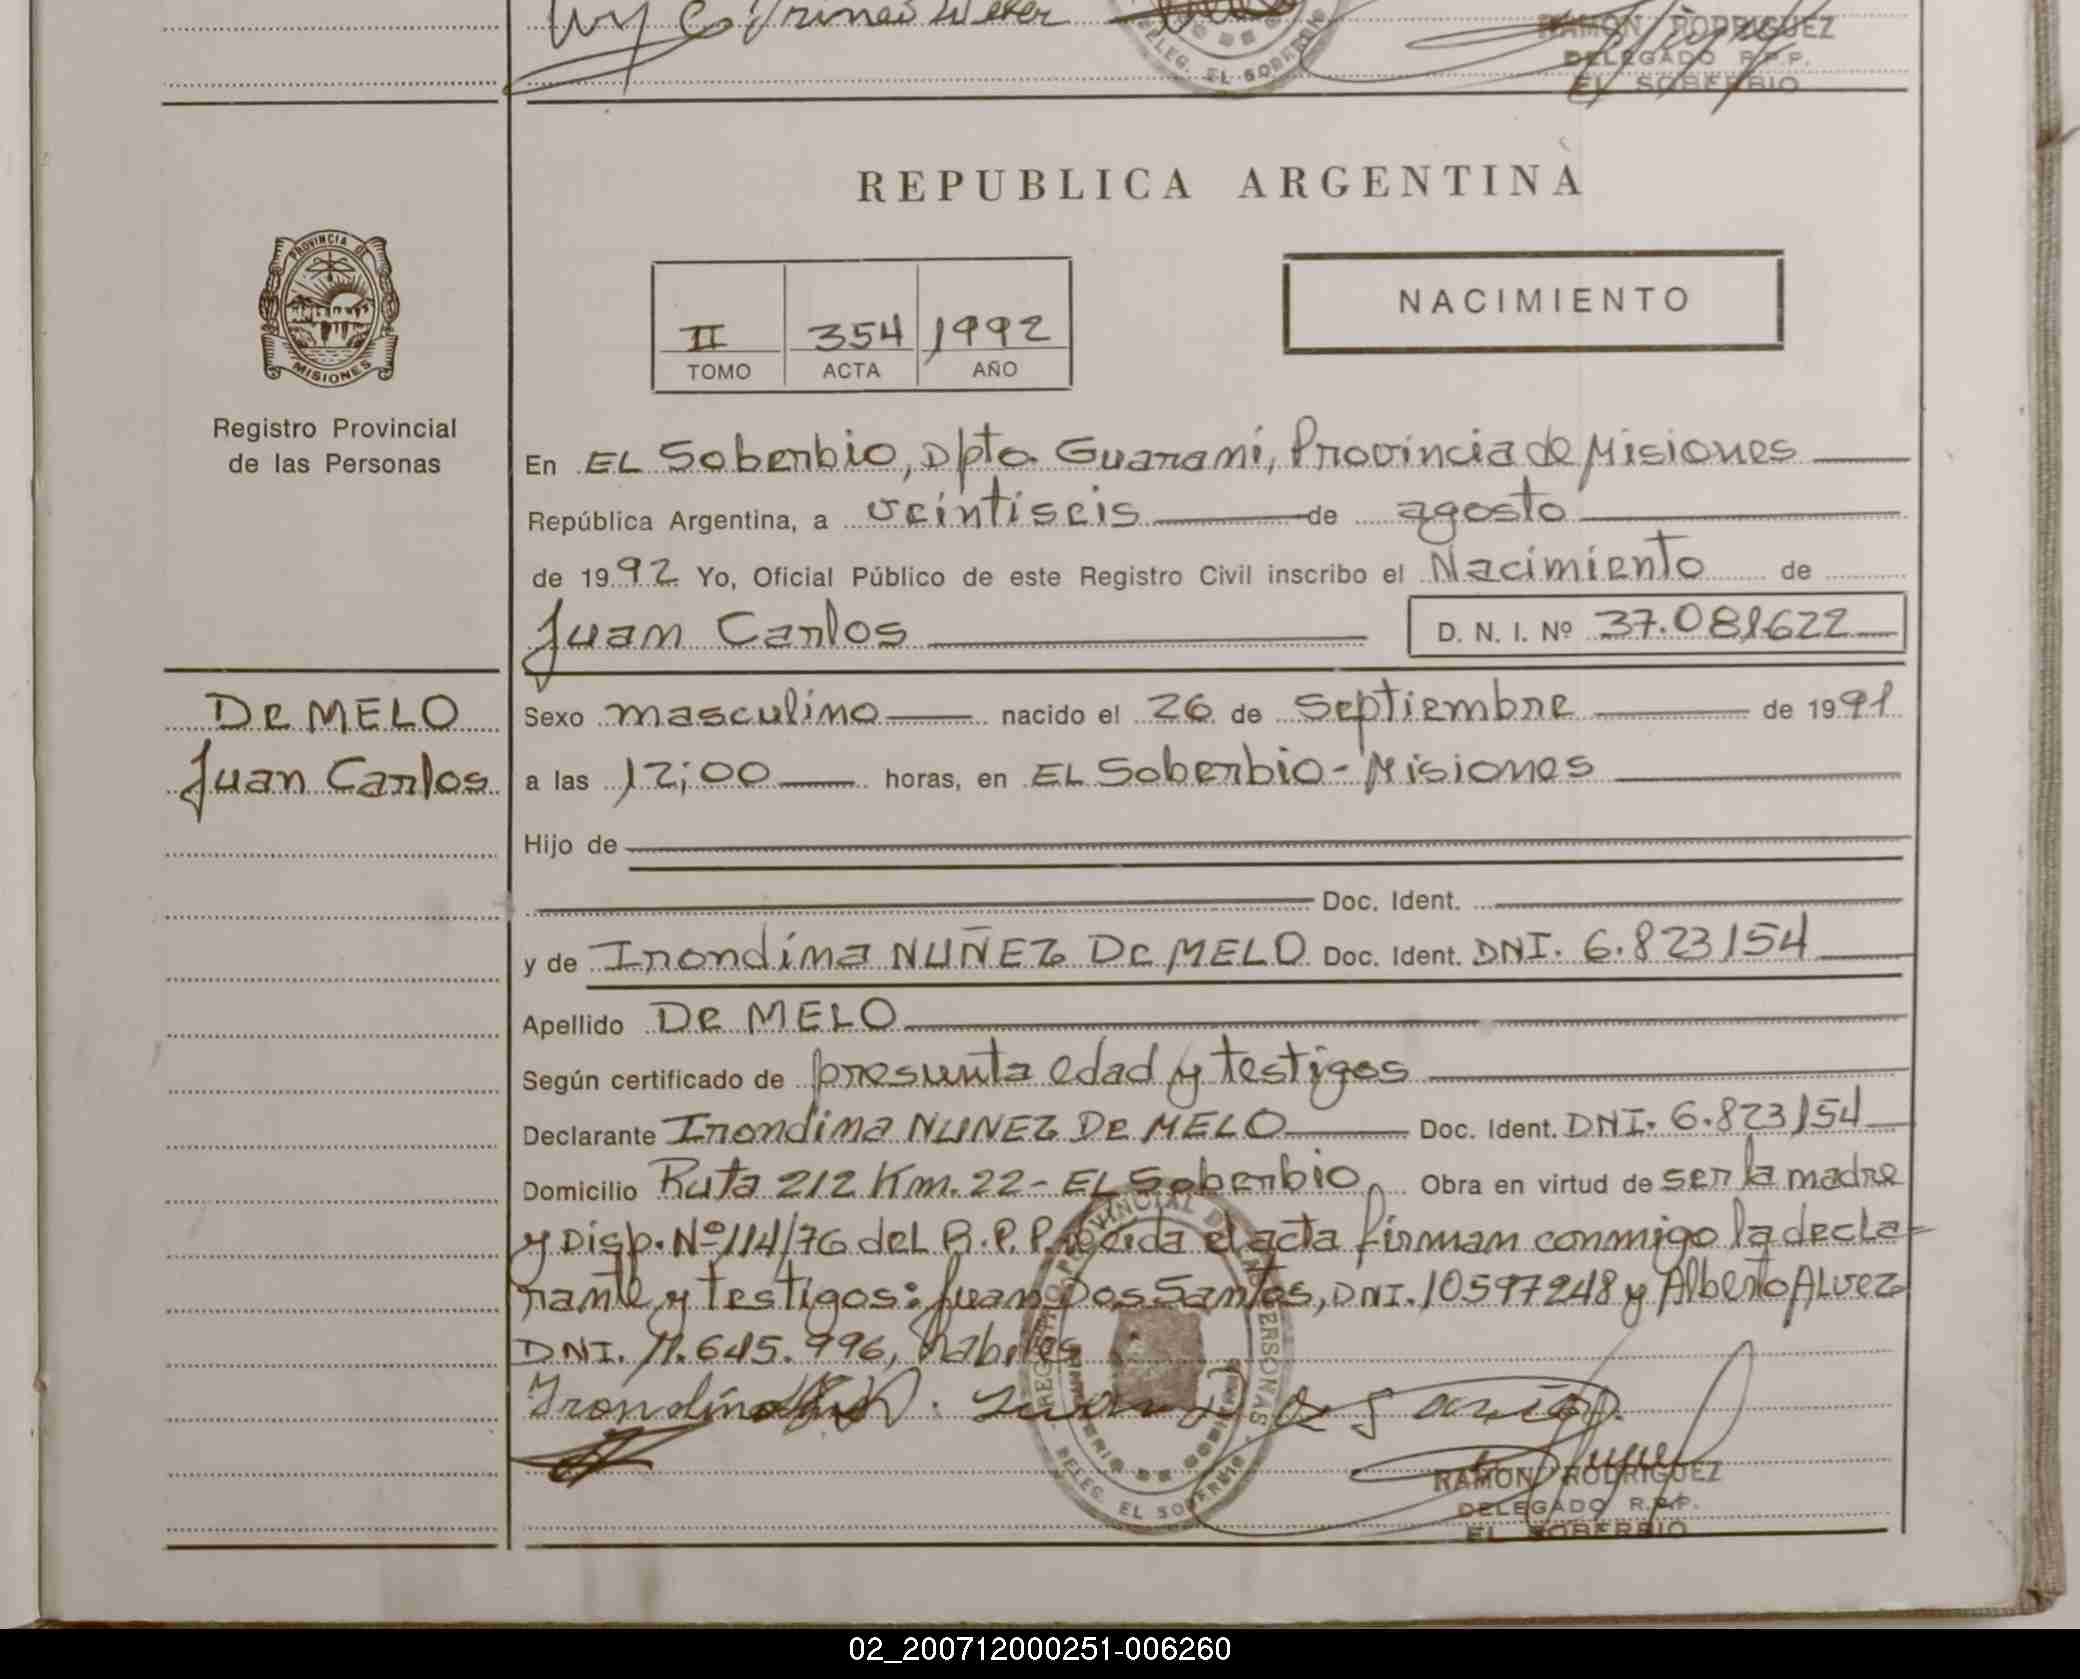 RAMON RODRIGUEZ
DELEG. EL SOBERBIO
DELEGADO R.P.P.
EL SOBERBIO
REPUBLICA ARGENTINA
PROVINCIA DE
MISIONES
Registro Provincial
de las Personas
NACIMIENTO
II 354 1992
TOMO ACTA AÑO
En EL Soberbio, Dpto. Guarani, Provincia de Misiones
República Argentina, a veintiseis de agosto
de 1992 Yo, Oficial Público de este Registro Civil inscribo el Nacimiento de
Juan Carlos D. N. I. Nº 37.081622
De MELO
Juan Carlos
Sexo masculino nacido el 26 de septiembre de 1991
a las 12;00 horas, en EL Soberbio - Misiones
Hijo de
Doc. Ident.
y de Irondina NUÑEZ De MELO Doc. Ident. DNI. 6.823154
Apellido De MELO
Según certificado de presunta edad y testigos
Declarante Irondina NUNEZ De MELO Doc. Ident. DNI. 6.823154
Domicilio Ruta 212 Km. 22 - EL Soberbio Obra en virtud de ser la madre
y Disp. Nº 114/76 del R.P.P. Leída el acta firman conmigo la decla-
rante y testigos: Juan Dos Santos, DNI. 10597248 y Alberto ALvez
DNI. 11.645.996, habiles
Irondina Juan Dos Santos
REGISTRO PROVINCIAL DE LAS PERSONAS
MINISTERIO DE GOBIERNO
DELEG. EL SOBERBIO
RAMON RODRIGUEZ
DELEGADO R.P.P.
EL SOBERBIO
02_200712000251-006260